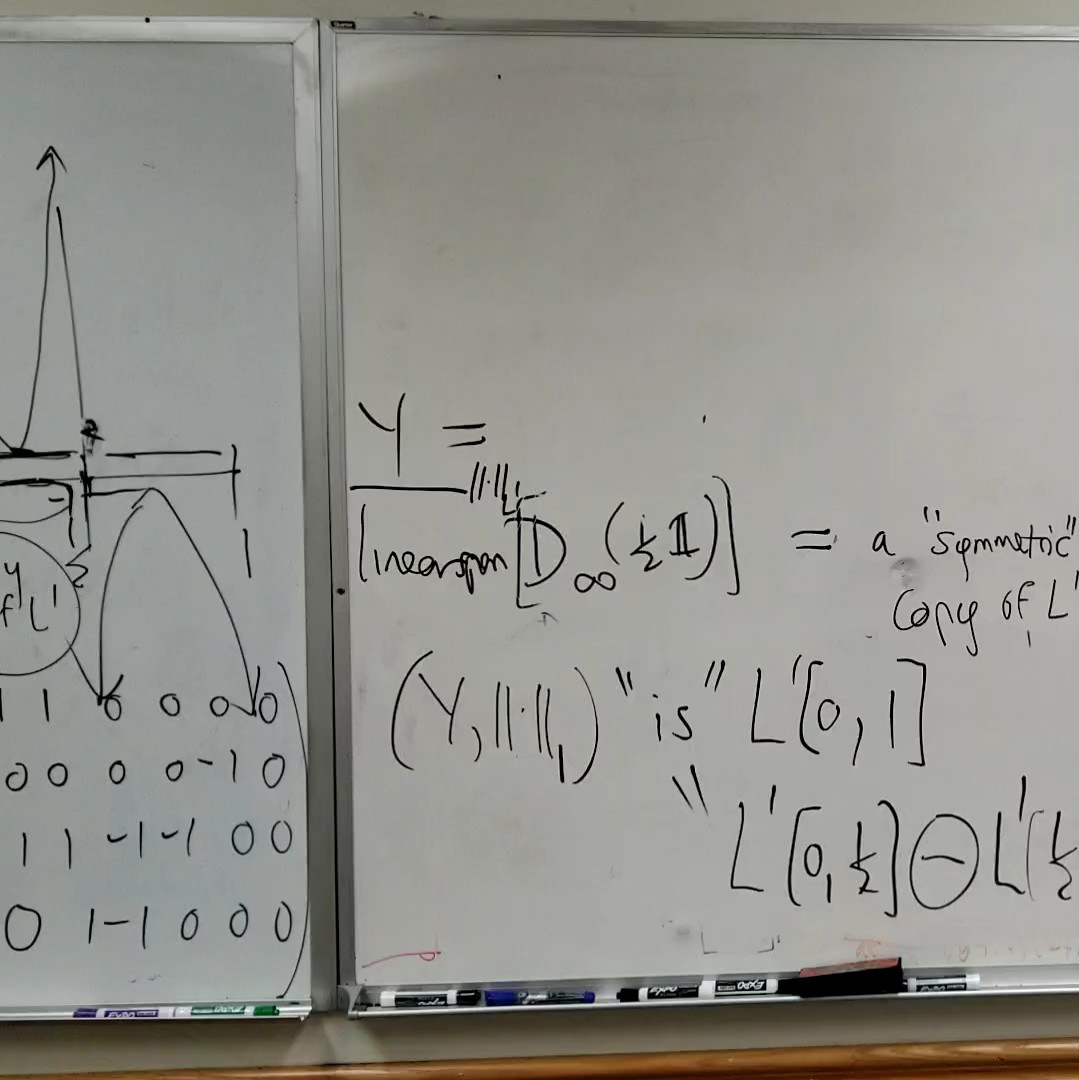 1
y
f L¹
1 1 0 0 0 0
0 0 0 0 -1 0
1 1 -1 -1 0 0
0 1 -1 0 0 0
Y =
‖·‖_L¹
[linearspan[D_∞(½𝟙)] = a "symmetric"
copy of L¹
(Y, ‖·‖₁) "is" L¹[0, 1]
" L¹[0, ½] ⊖ L¹[½
EXPO
EXPO